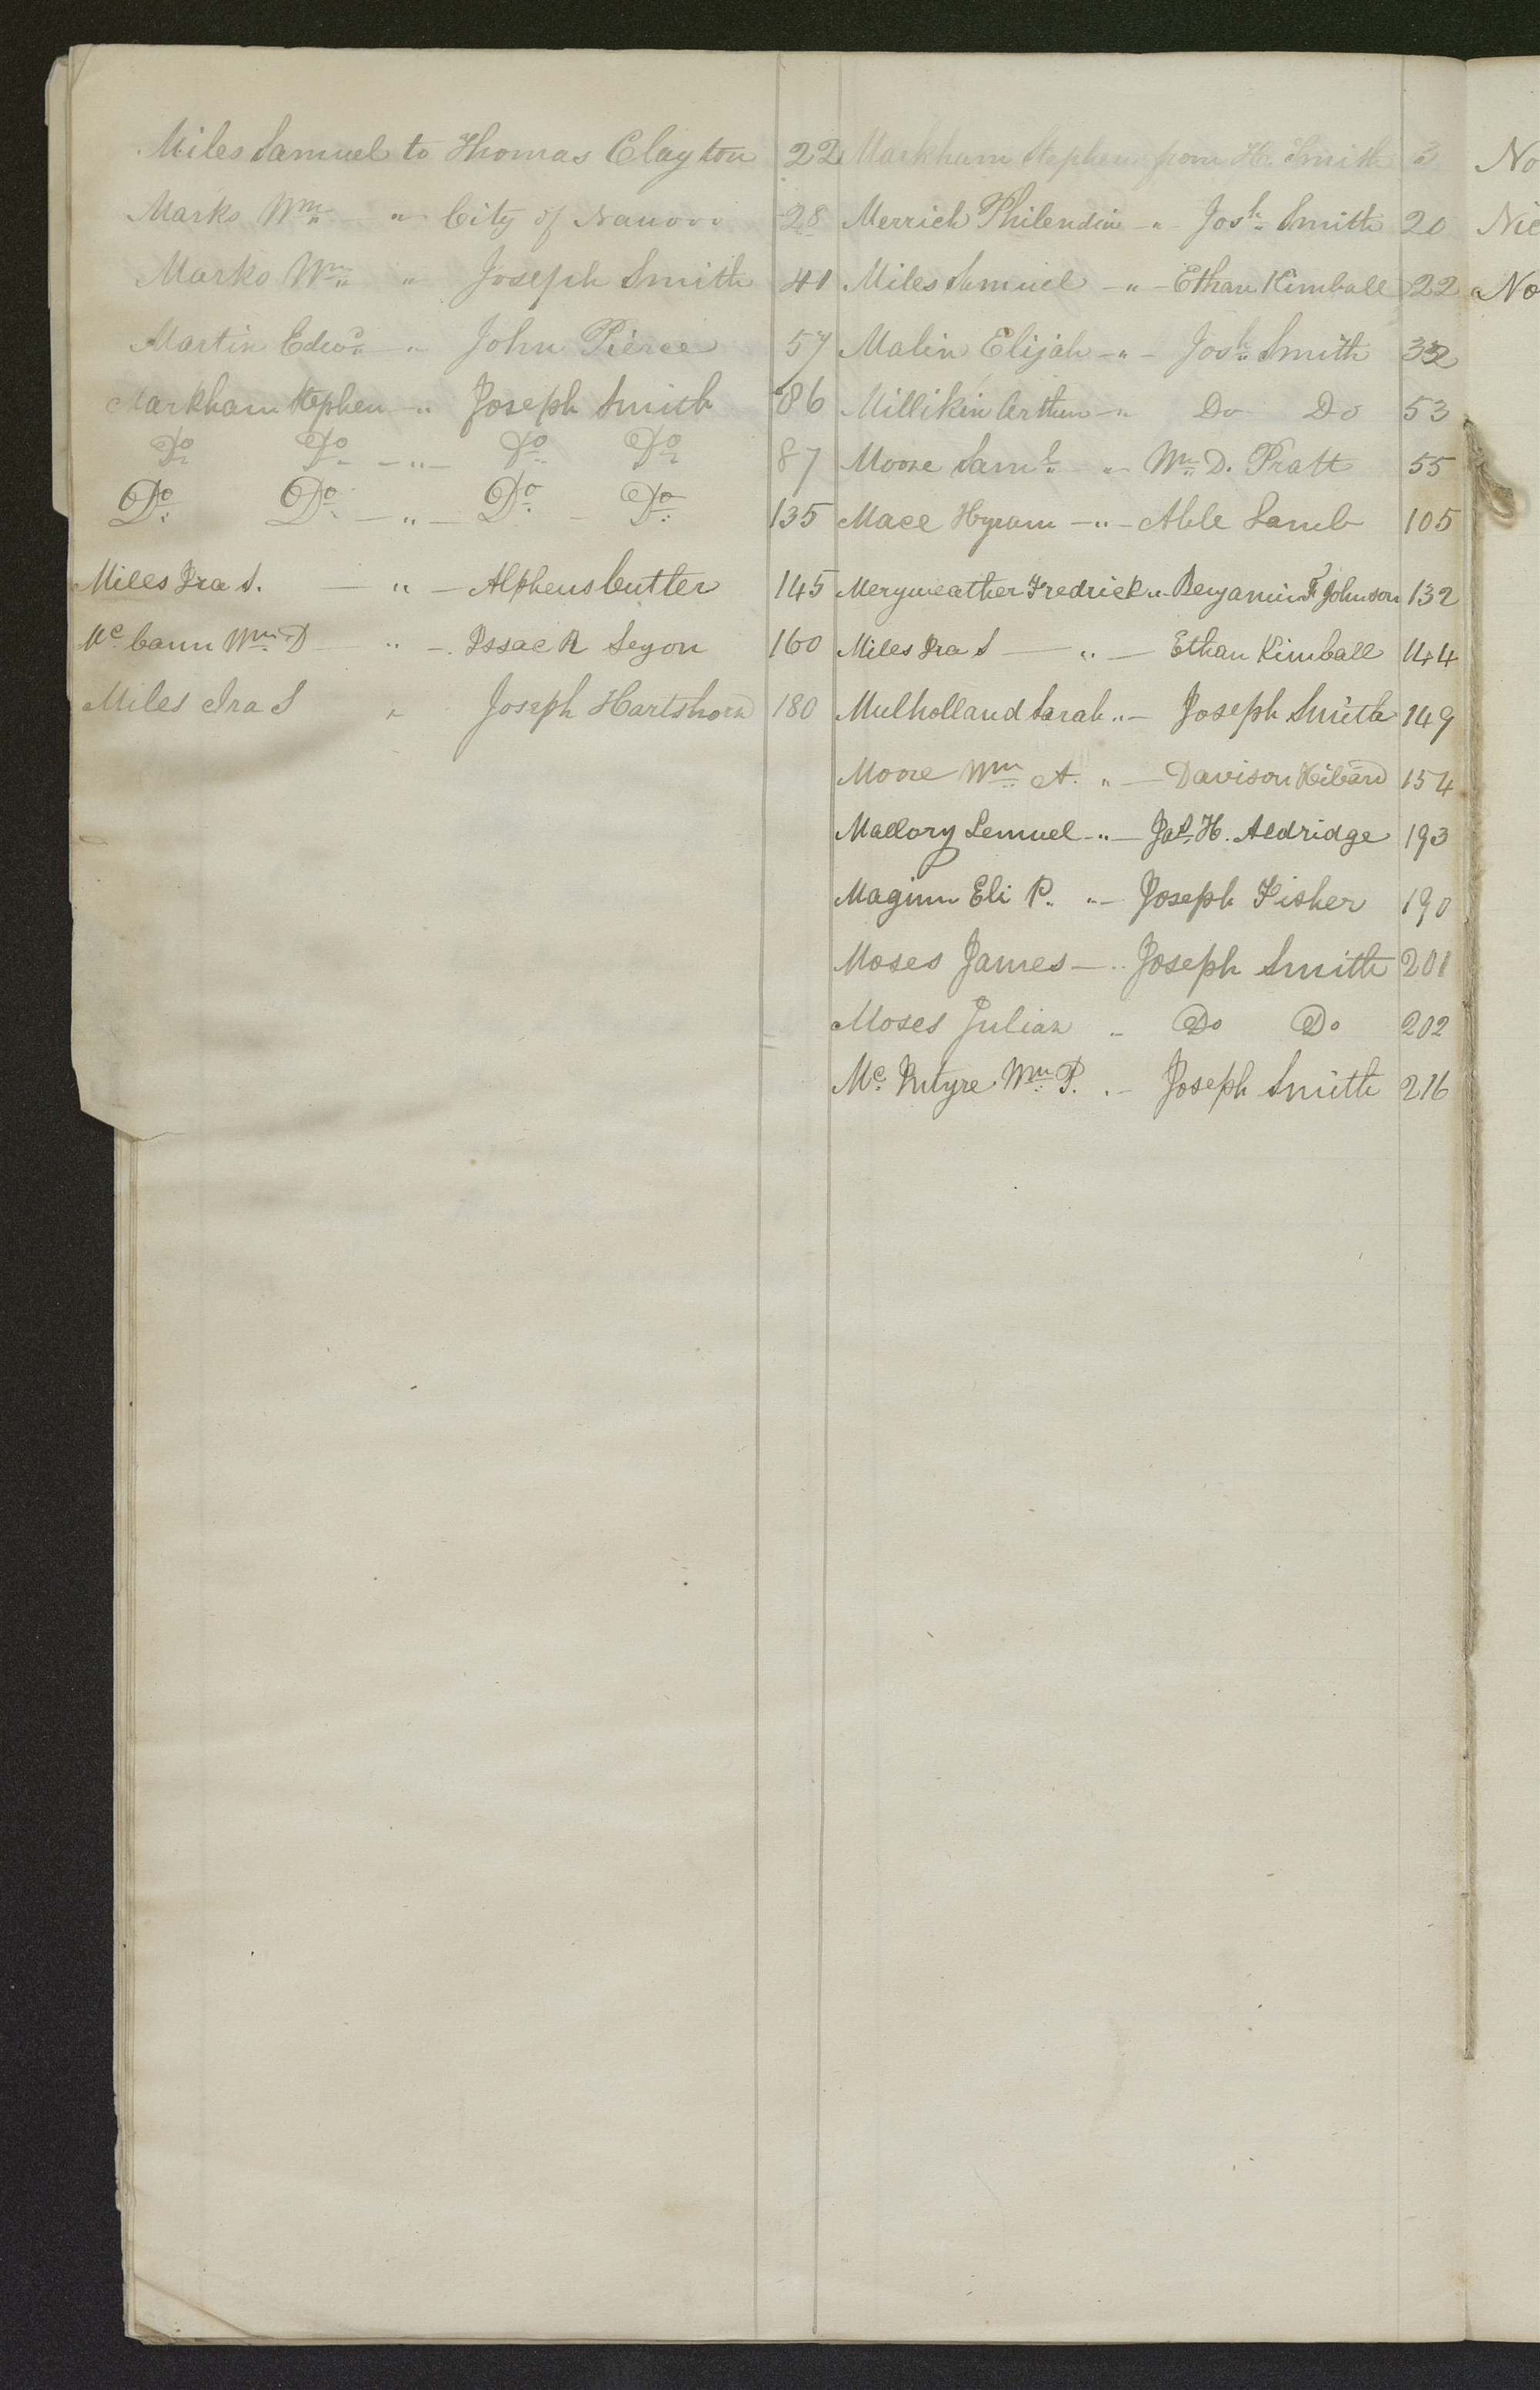 Miles Samuel to Thomas Clayton 22
Marks Wm " City of Nauvoo 28
Marks Wm " Joseph Smith 41
Martin Edwd " John Pierce 57
Markham Stephen " Joseph Smith 86
Do Do " Do Do 87
Do Do " Do Do 135
Miles Ira S. " Alpheus Cutler 145
Mc Cann Wm D " Issac R Segon 160
Miles Ira S " Joseph Hartshorn 180
Markham Stephen from H. Smith 3
Merrick Philendia " Josh Smith 20
Miles Samuel " Ethan Kimball 22
Malin Elijah " Josh Smith 32
Millikin Arthur " Do Do 53
Moore Saml " Wm D. Pratt 55
Mace Hyram " Able Lamb 105
Meryweather Fredrick " Benjamin F Johnson 132
Miles Ira S " Ethan Kimball 144
Mulholland Sarah " Joseph Smith 149
Moore Wm A. " Davison Hibard 154
Mallory Lemuel " Jas H. Aldridge 193
Maginn Eli P. " Joseph Fisher 190
Moses James " Joseph Smith 201
Moses Julian " Do Do 202
Mc Intyre Wm P. " Joseph Smith 216
No
Nic
No